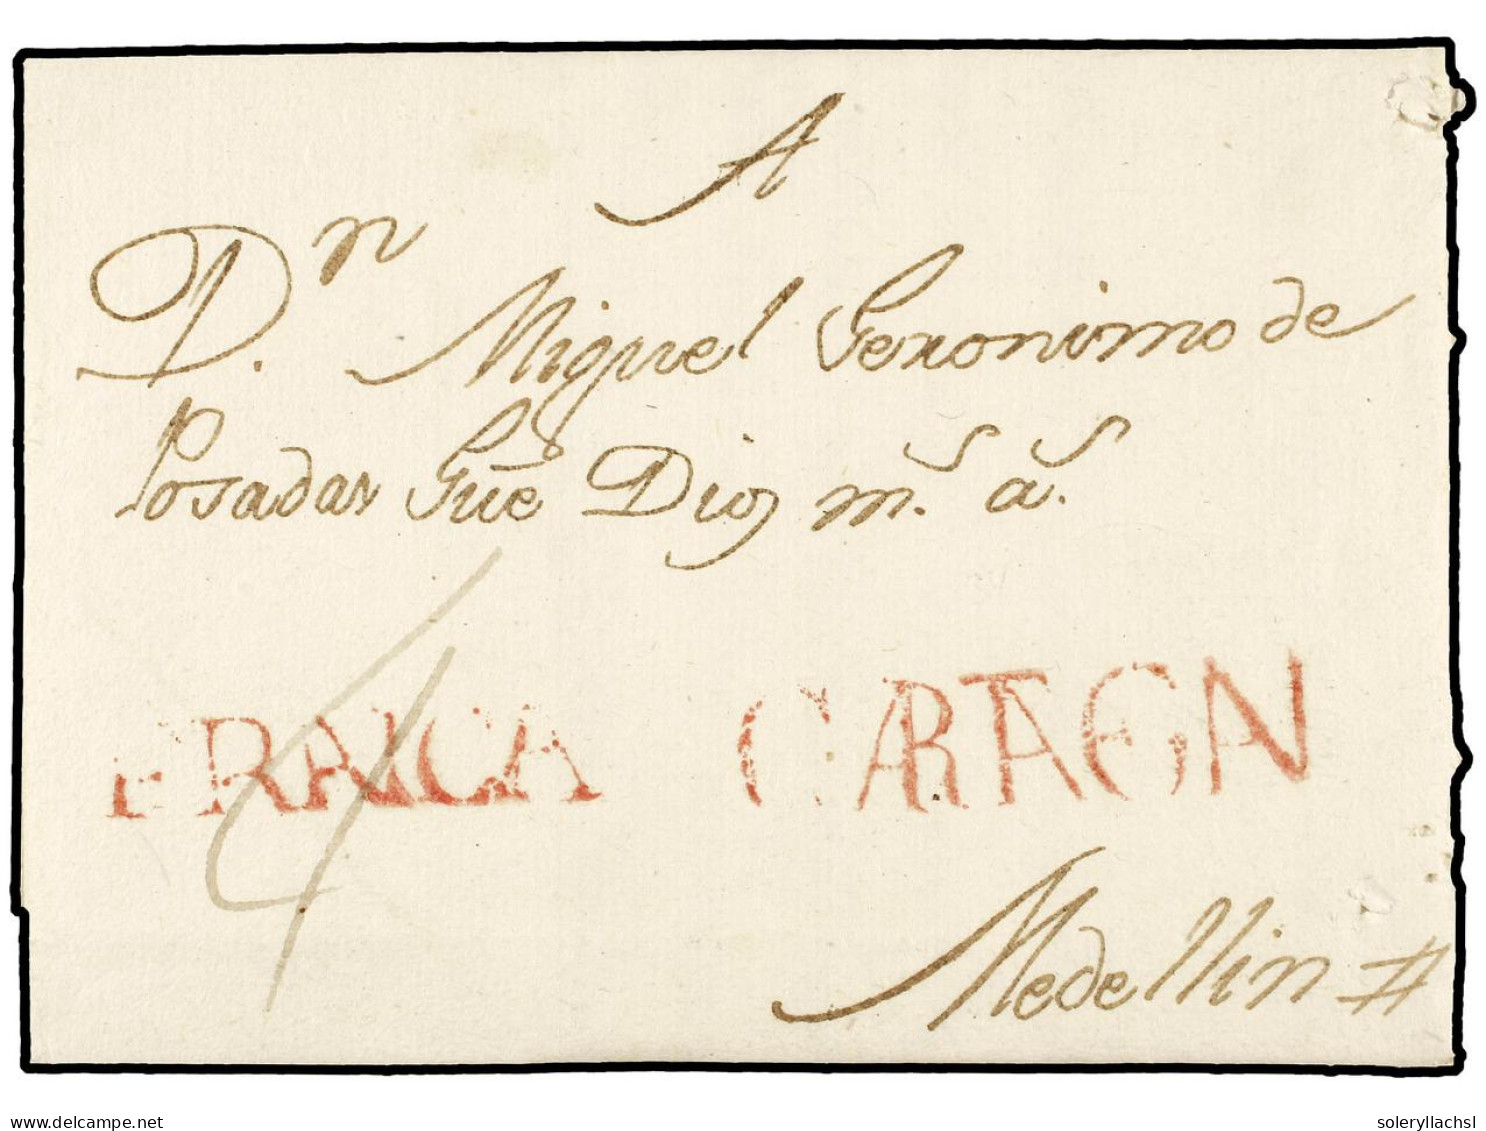 A
Dn. Miguel Geronimo de
Posadas Gūe Dios m.s a.s
4
FRANCA CARTAGNA
Medellin #
delcampe.net
soleryllachsl